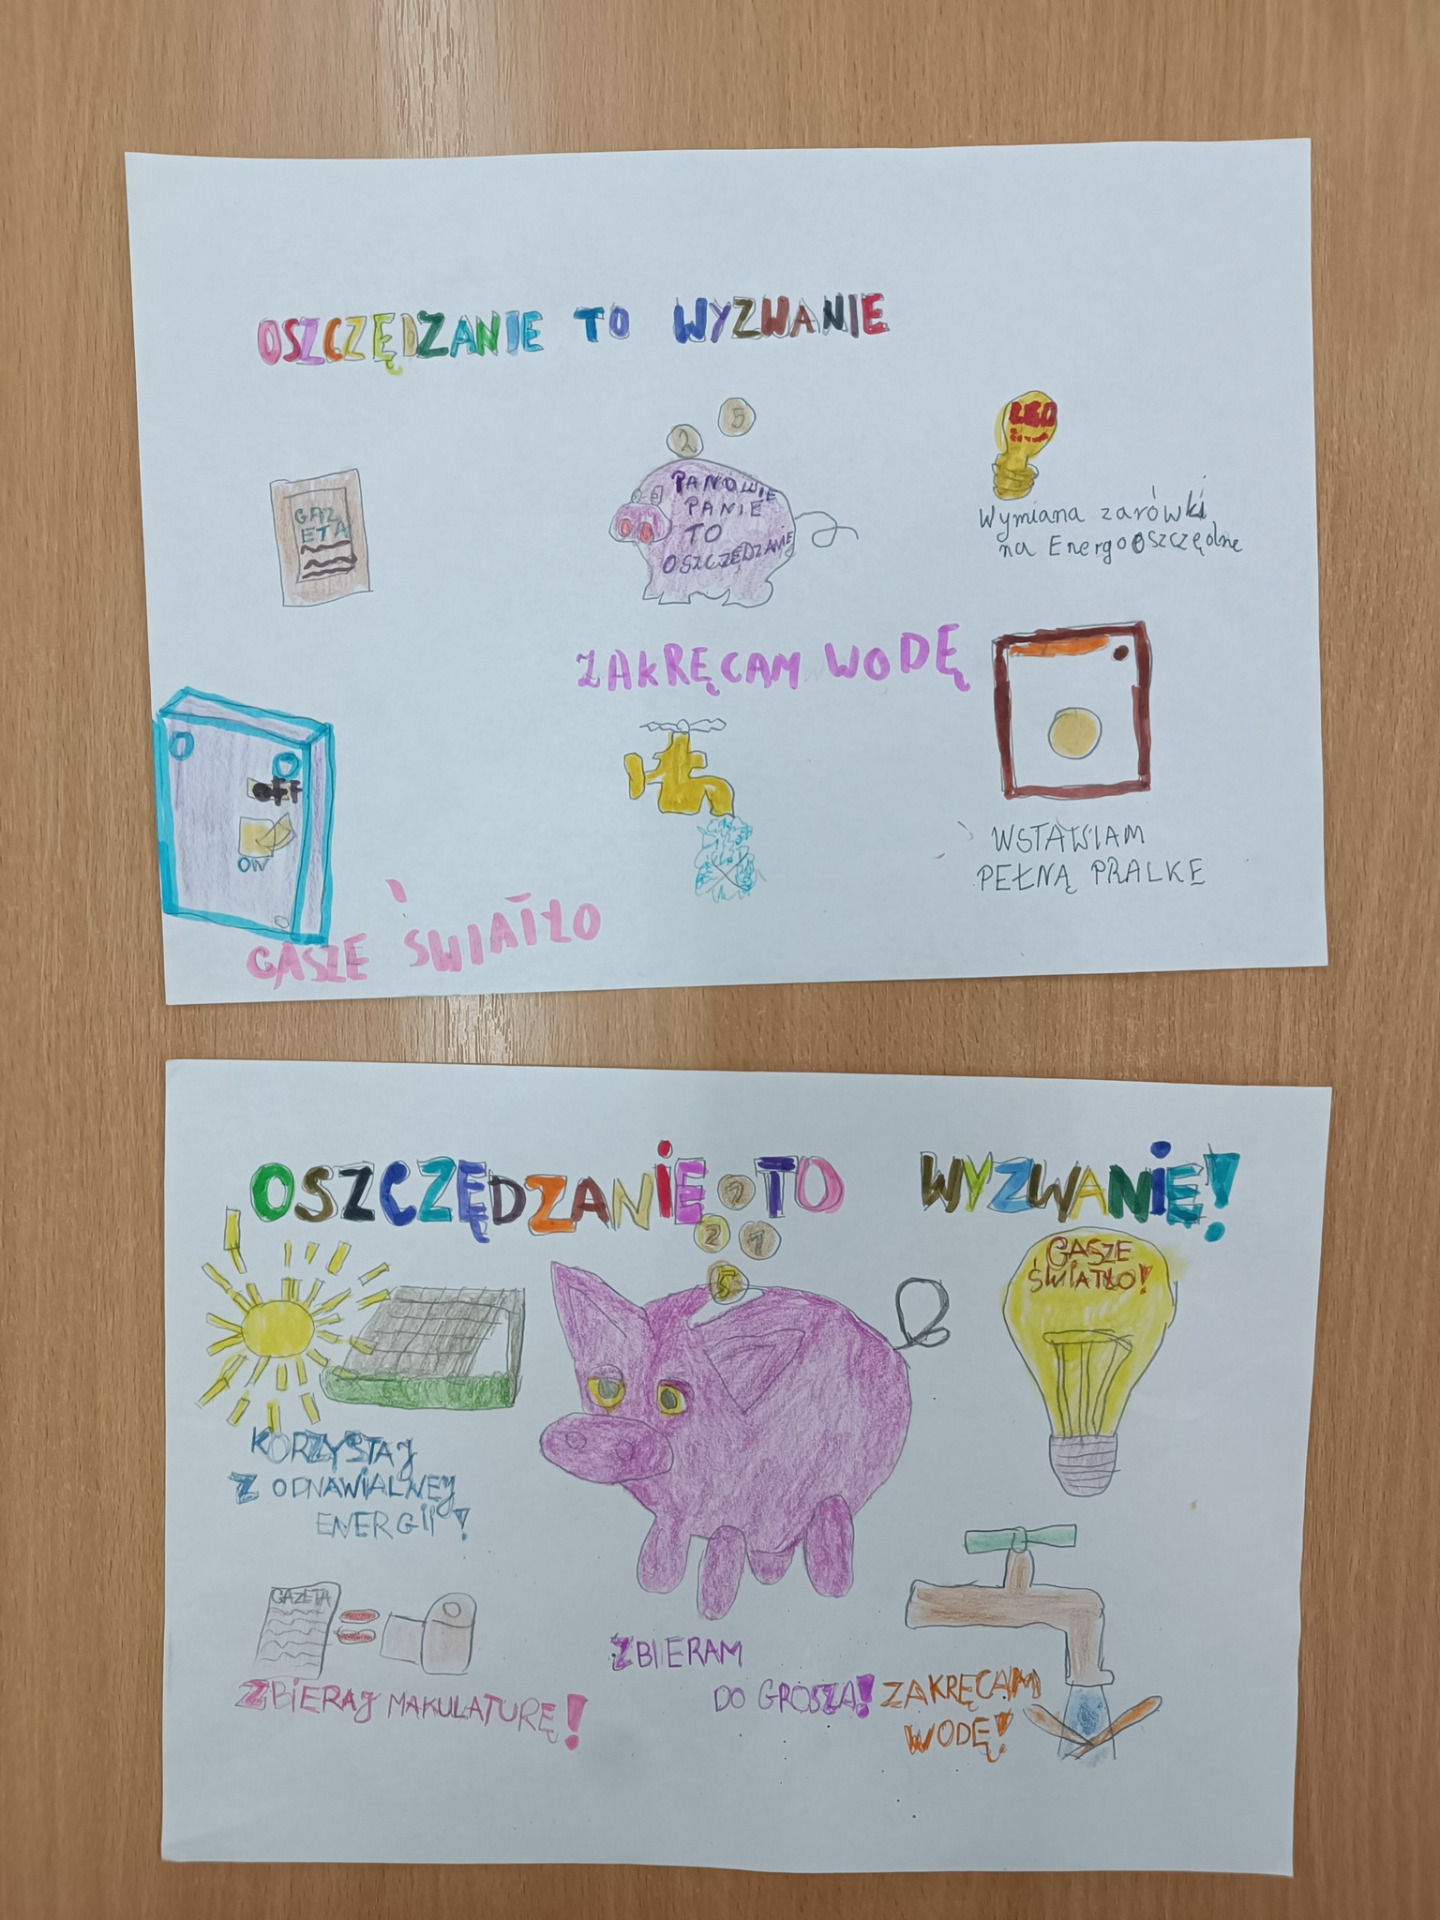 OSZCZĘDZANIE TO WYZWANIE
2
5
LED
GAZ
ETA
PANOWIE
PANIE
TO
OSZCZĘDZANIE
Wymiana zarówki
na Energooszczędne
ZAKRĘCAM WODĘ
OFF
ON
WSTAWIAM
PEŁNĄ PRALKE
GASZE ŚWIATŁO
OSZCZĘDZANIE TO WYZWANIE!
2
1
5
GASZE
ŚWIATŁO!
KORZYSTAJ
Z ODNAWIALNEJ
ENERGII!
GAZETA
ZBIERAJ MAKULATURĘ!
ZBIERAM
DO GROSZA!
ZAKRĘCAM
WODĘ!